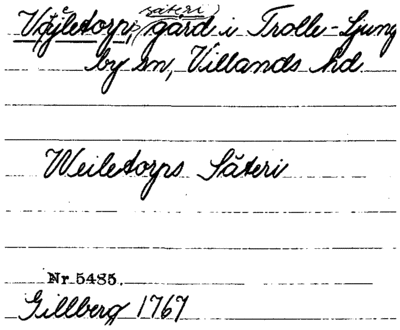 säteri)
Vejletorp, gård i Trolle-Ljung
by sn, Villands hd.
Weiletorps Säteri
Nr 5485.
Gillberg 1767